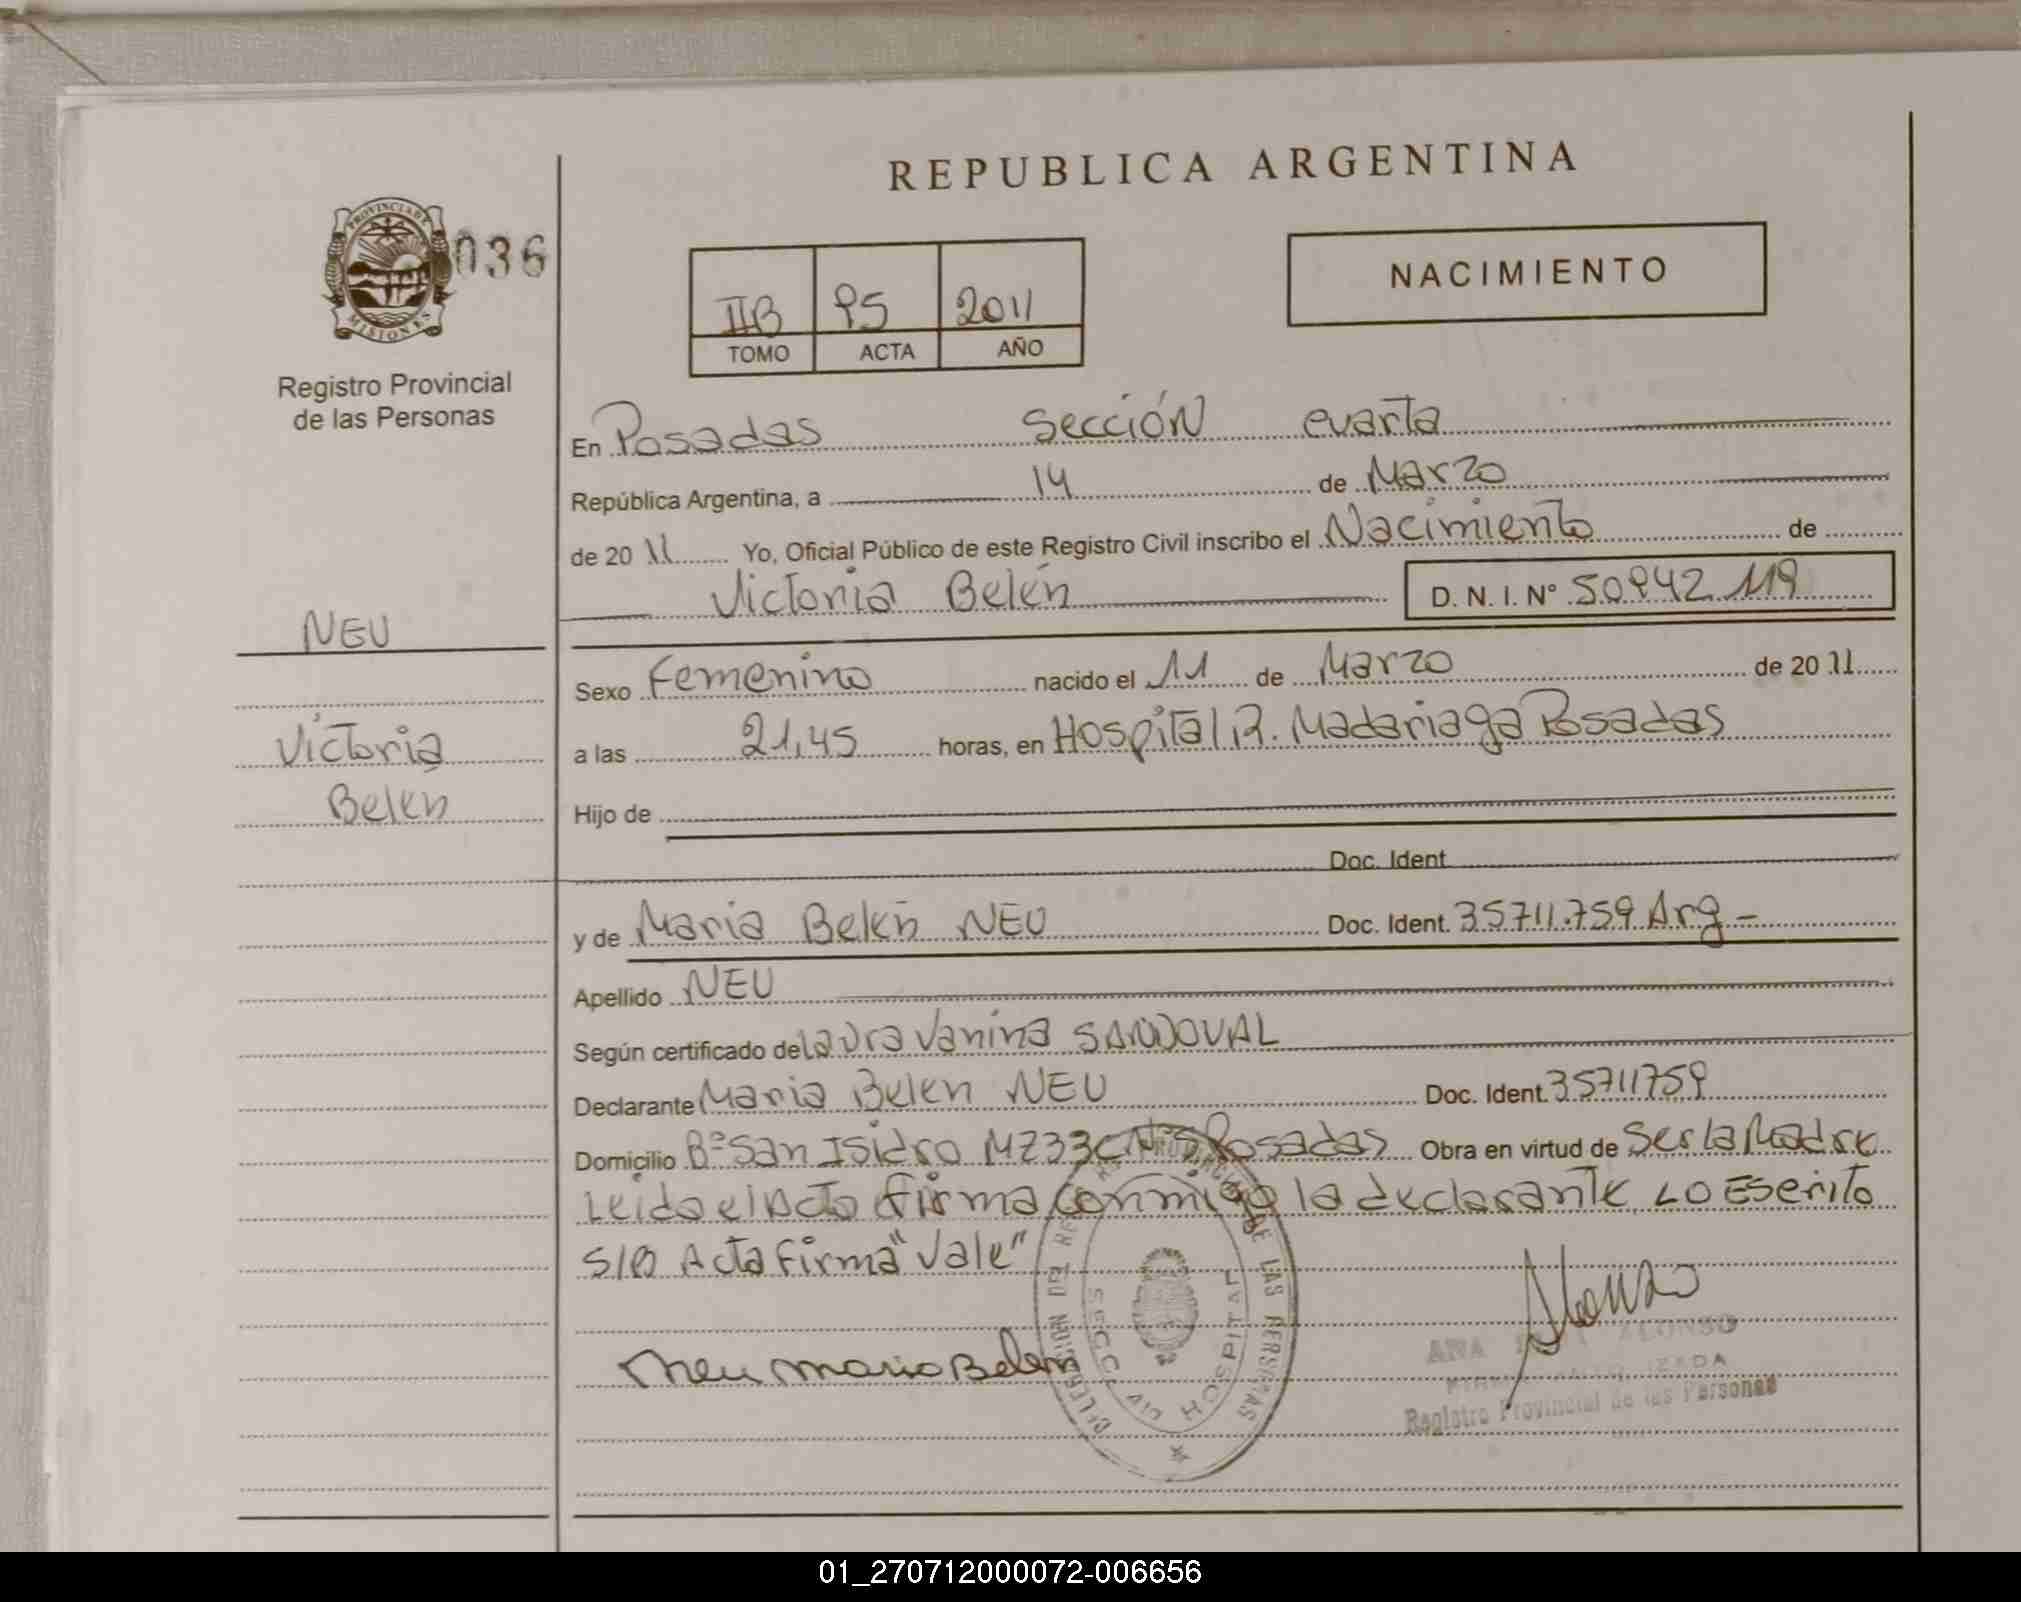 REPUBLICA ARGENTINA
PROVINCIA DE
MISIONES
036
Registro Provincial
de las Personas
IIB 95 2011
TOMO ACTA AÑO
NACIMIENTO
En Posadas Sección cuarta
República Argentina, a 14 de Marzo
de 2011 Yo, Oficial Público de este Registro Civil inscribo el Nacimiento de
Victoria Belén D. N. I. N° 50942119
NEU
Victoria
Belén
Sexo Femenino nacido el 11 de Marzo de 2011
a las 21,45 horas, en Hospital R. Madariaga Posadas
Hijo de
Doc. Ident.
y de Maria Belén NEU Doc. Ident. 35711.759 Arg -
Apellido NEU
Según certificado de Laura Vanina SANDOVAL
Declarante Maria Belen NEU Doc. Ident. 35711759
Domicilio B° San Isidro MZ33C N°5 Posadas Obra en virtud de Ser la Madre
Leida el Acta firma conmigo la declarante, Lo Escrito
S/B Acta Firma "Vale"
Neu Maria Belen
Alonso
DELEGACION DEL REG. PROVINCIAL DE LAS PERSONAS
SECC. 4ta HOSPITAL
ANA ALONSO
Registro Provincial de las Personas
01_270712000072-006656